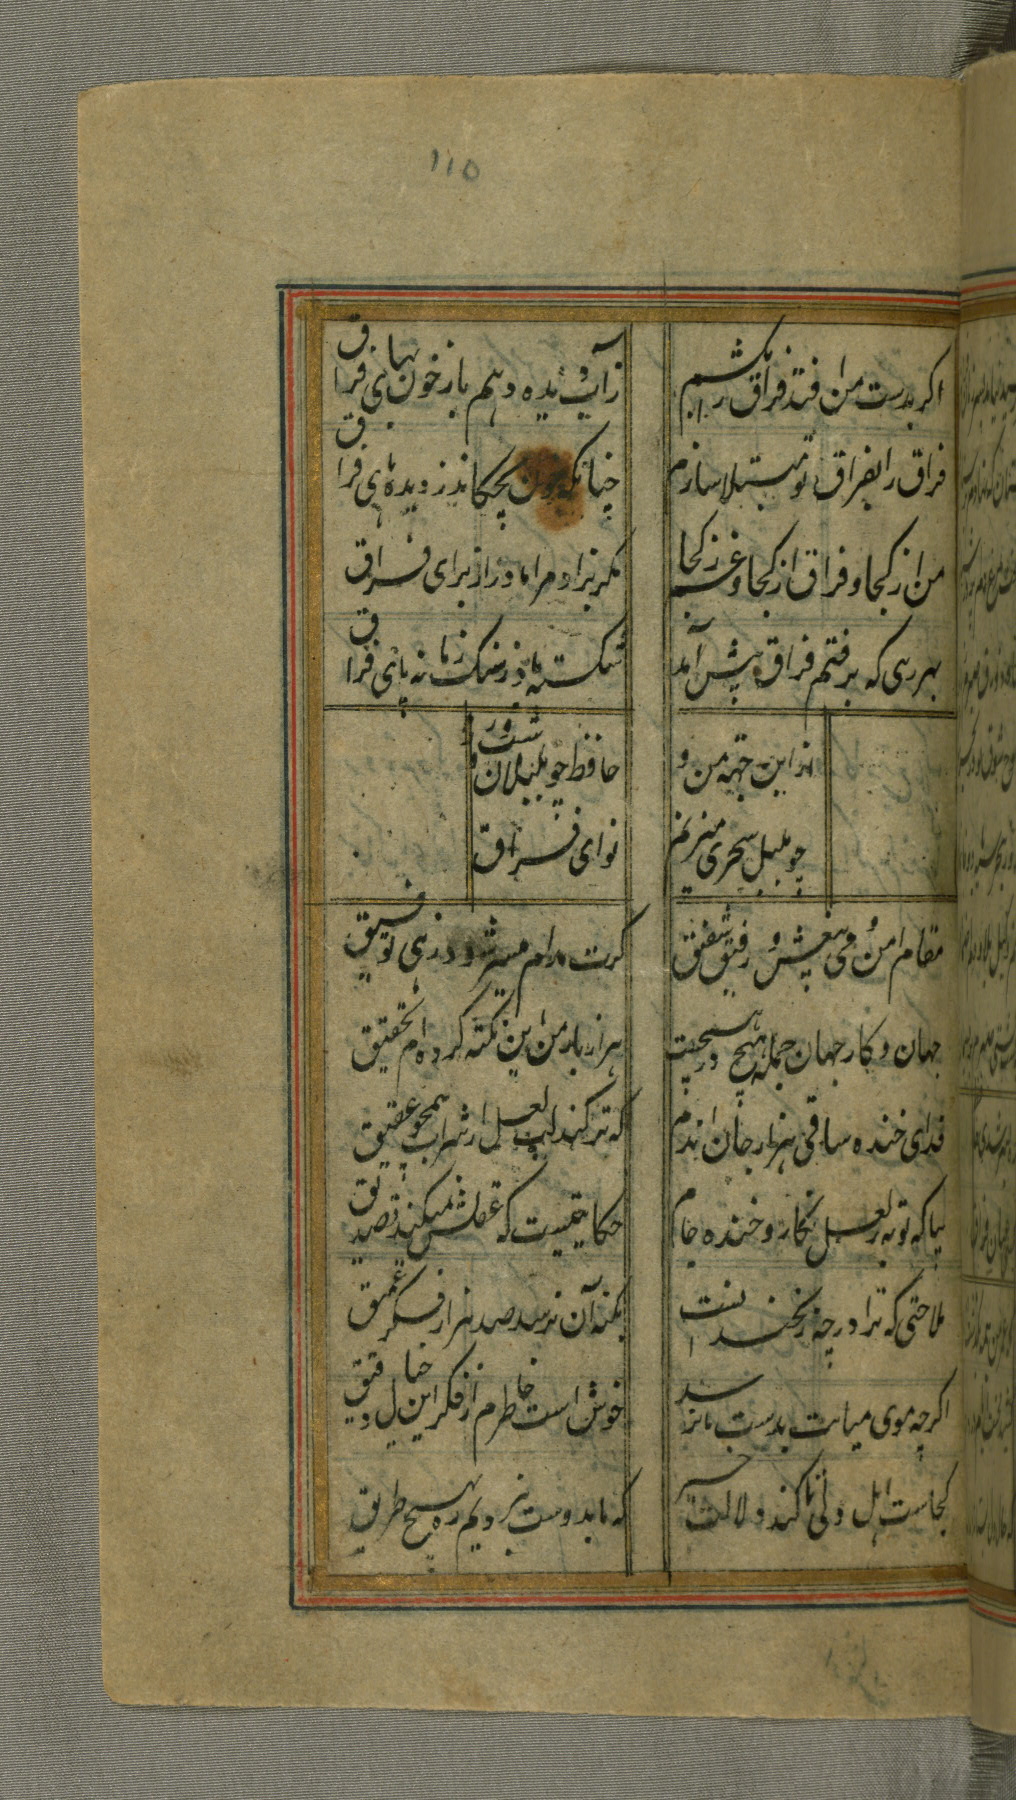 ۱۱۵
اکر بدست من افتد فراق را بکشم
زآب دیده دهم باز خون بهای فراق
فراق را بفراق تو مبتلا سازم
چنانکه خون بچکاند ز دیدهای فراق
من از کجا و فراق از کجا و غم ز کجا
مکر بزاد مرا مادر از برای فراق
بهر رهی که برفتم فراق پیش آمد
شکسته باد ز سنک زمانه پای فراق
از این جهه من و
حافظ چو بلبلان شب و روز
چو بلبل سحری میزنم
نوای فراق
مقام امن و می بیغش و رفیق شفیق
کرت مدام میسر شود زهی توفیق
جهان و کار جهان جمله هیچ در هیچست
هزار بار من این نکته کرده ام تحقیق
فدای خنده ساقی هزار جان اندم
که تر کند لب لعل از شراب همچو عقیق
بیا که توبه ز لعل نکار و خنده جام
حکایتیست که عقلش نمیکند تصدیق
ملاحتی که ترا در چه زنخدانست
بکنه آن نرسد صد هزار فکر عمیق
اکرچه موی میانت بدست ما نرسد
خوش است خاطرم از فکر این خیال دقیق
کجاست اهل دلی تا کند دلالت خیر
که ما بدوست نبردیم ره بهیچ طریق